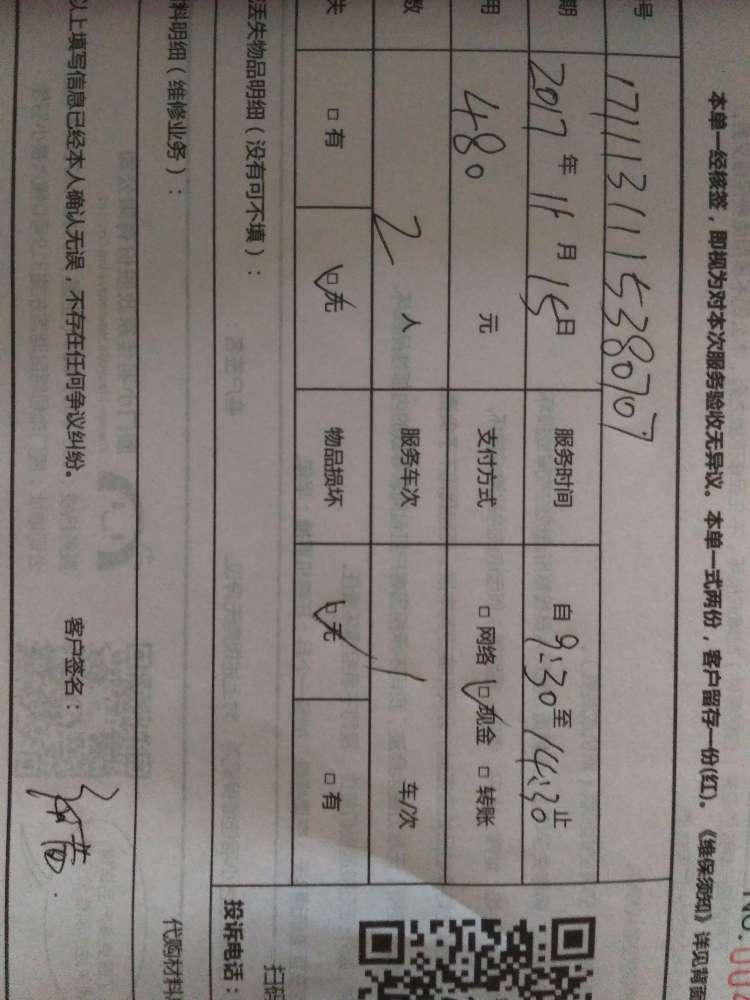 No.00
本单一经核签，即视为对本次服务验收无异议。本单一式两份，客户留存一份(红)。《维保须知》详见背面
号 171113111538070
期 2017 年 11 月 15 日 服务时间 自 9:30 至 14:30 止
用 480 元 支付方式 □ 网络 ☑ 现金 □ 转账
数 2 人 服务车次 1 车/次
失 □ 有 ☑ 无 物品损坏 ☑ 无 □ 有
丢失物品明细（没有可不填）：
投诉电话：
扫码
料明细（维修业务）：
代购材料
以上填写信息已经本人确认无误，不存在任何争议纠纷。 客户签名：